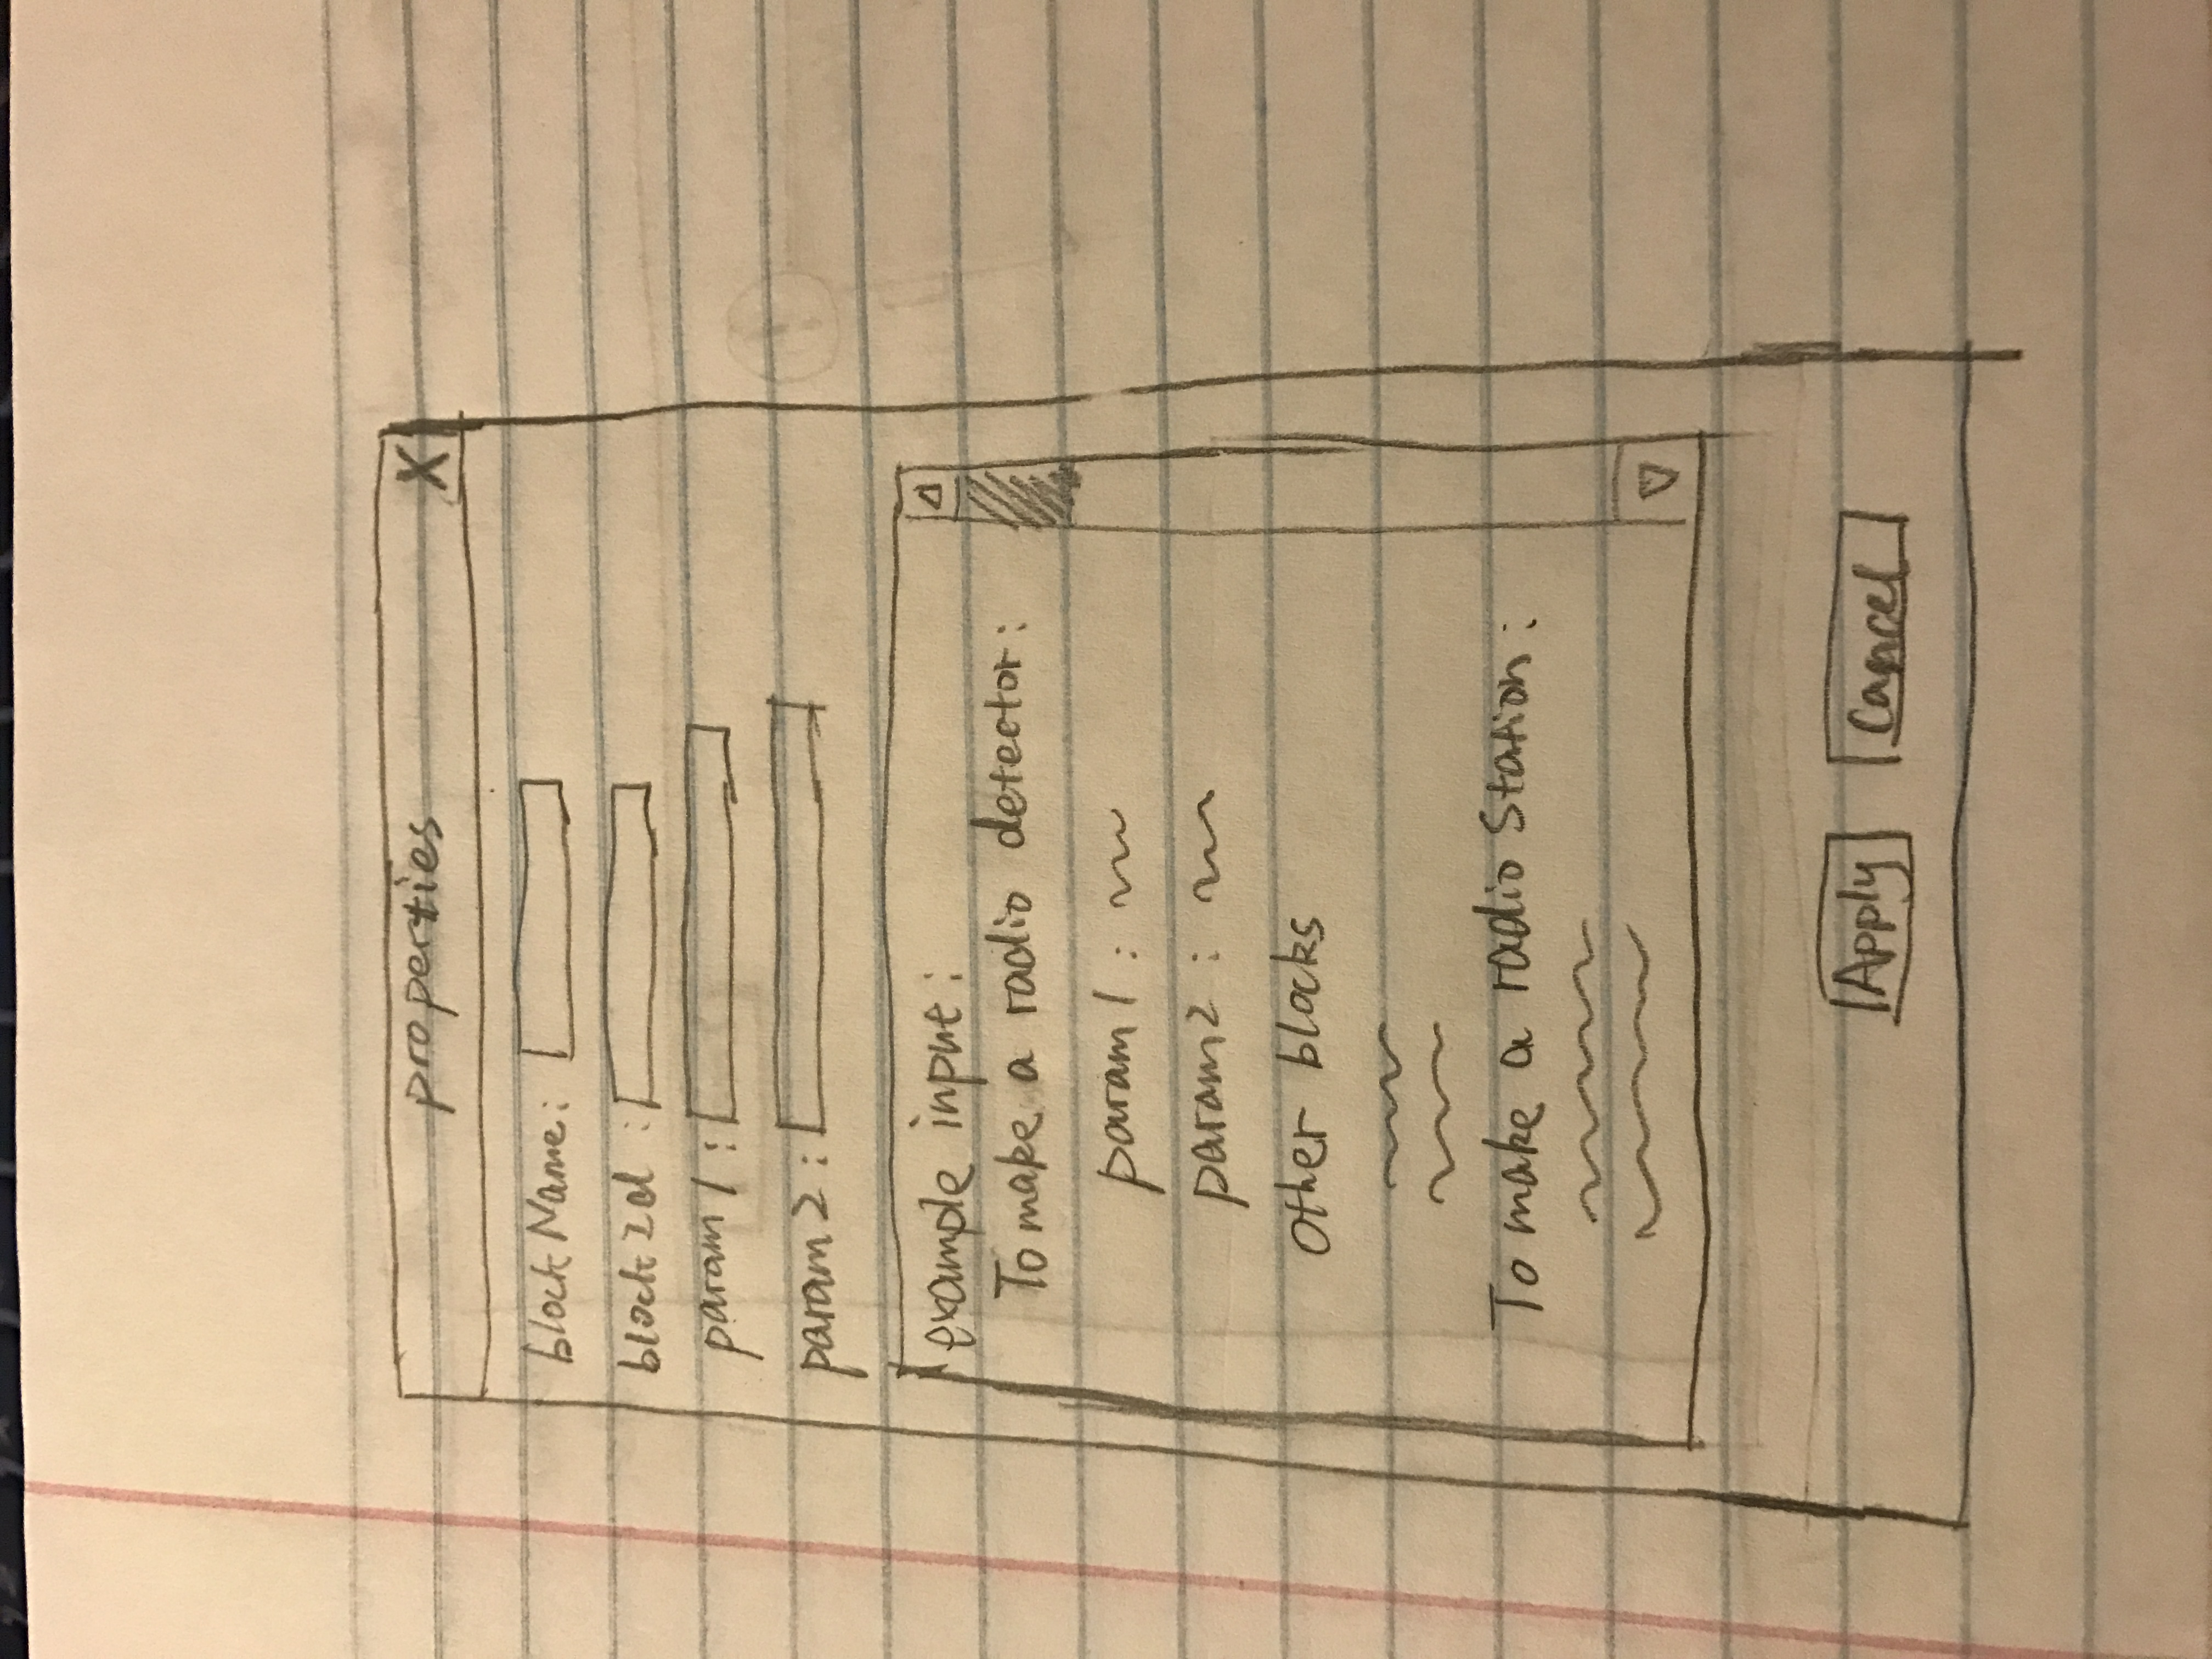 properties X
blockName:
blockId :
param1 :
param2 :
example input :
To make a radio detector :
param1 :
param2 :
other blocks
To make a radio Station :
Apply Cancel